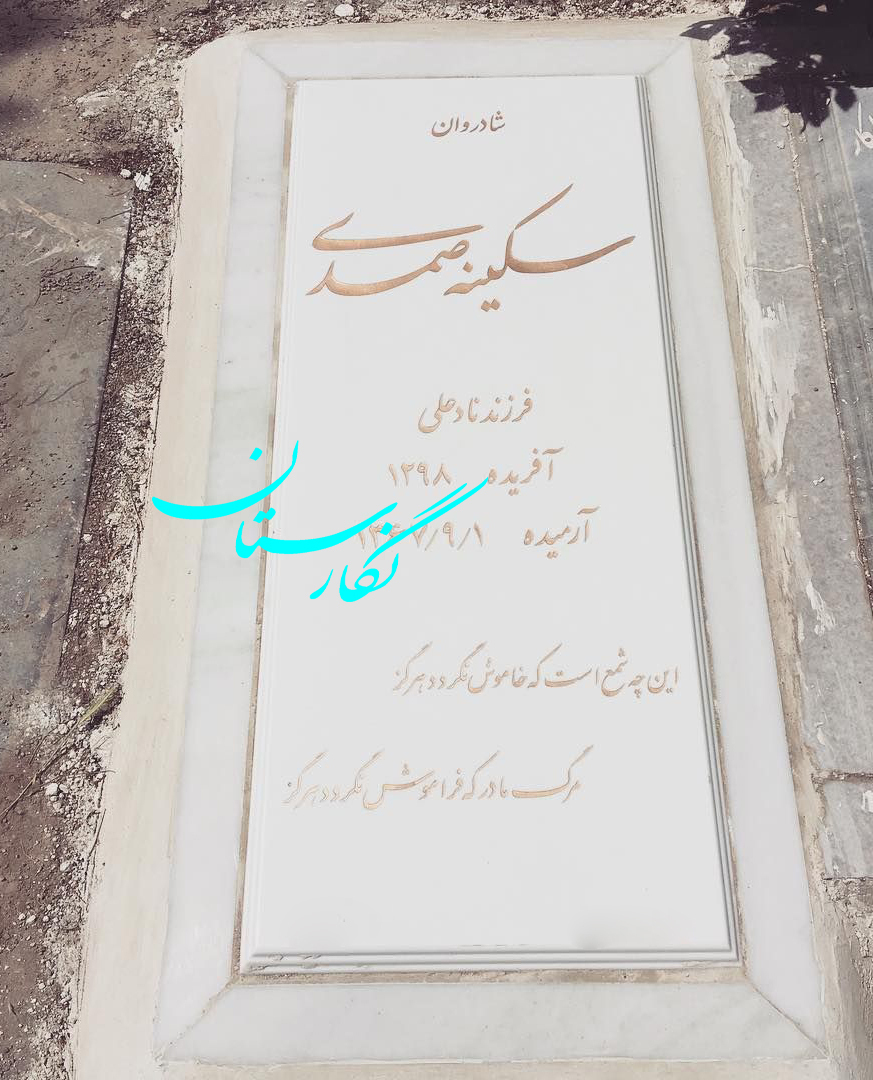 شادروان
سکینه صمدی
فرزند نادعلی
آفریده ۱۲۹۸
آرمیده ۱۳۶۷/۹/۱
نگارستان
این چه شمع است که خاموش نگردد هرگز
مرگ مادر که فراموش نگردد هرگز